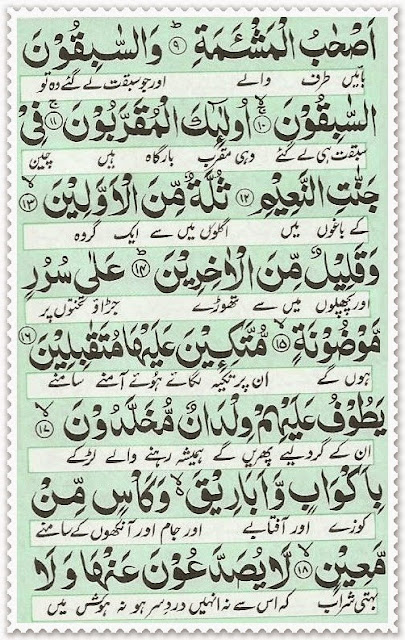 اَصۡحٰبُ الۡمَشۡـَٔمَةِ ؕ‏ ﴿۹﴾ وَالسّٰبِقُوۡنَ
بائیں طرف والے اور جو سبقت لے گئے وہ تو
السّٰبِقُوۡنَ ۚۙ‏ ﴿۱۰﴾ اُولٰٓٮِٕكَ الۡمُقَرَّبُوۡنَ‌ ۚ‏ ﴿۱۱﴾ فِىۡ
سبقت ہی لے گئے وہی مقرب بارگاہ ہیں چین
جَنّٰتِ النَّعِيۡمِ‏ ﴿۱۲﴾ ثُلَّةٌ مِّنَ الۡاَوَّلِيۡنَ ۙ‏ ﴿۱۳﴾
کے باغوں میں اگلوں میں سے ایک گروہ
وَقَلِيۡلٌ مِّنَ الۡاٰخِرِيۡنَ ؕ‏ ﴿۱۴﴾ عَلٰى سُرُرٍ
اور پچھلوں میں سے تھوڑے جڑاؤ تختوں پر
مَّوۡضُوۡنَةٍ ۙ‏ ﴿۱۵﴾ مُّتَّكِـِٕيۡنَ عَلَيۡهَا مُتَقٰبِلِيۡنَ‏ ﴿۱۶﴾
ہوں گے ان پر تکیہ لگائے ہوئے آمنے سامنے
يَطُوۡفُ عَلَيۡهِمۡ وِلۡدَانٌ مُّخَلَّدُوۡنَ ۙ‏ ﴿۱۷﴾
ان کے گرد لیے پھریں گے ہمیشہ رہنے والے لڑکے
بِاَكۡوَابٍ وَّاَبَارِيۡقَ ۙ وَكَاۡسٍ مِّنۡ
کوزے اور آفتابے اور جام اور آنکھوں کے سامنے
مَّعِيۡنٍ ۙ‏ ﴿۱۸﴾ لَّا يُصَدَّعُوۡنَ عَنۡهَا وَلَا
بہتی شراب کہ اس سے نہ انہیں درد سر ہو نہ ہوش میں